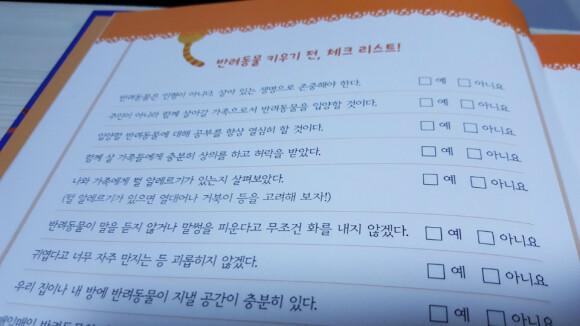 반려동물 키우기 전, 체크 리스트!
반려동물은 인형이 아니다. 살아 있는 생명으로 존중해야 한다. 예 아니요
주인이 아니라 함께 살아갈 가족으로서 반려동물을 입양할 것이다. 예 아니요
입양할 반려동물에 대해 공부를 항상 열심히 할 것이다. 예 아니요
함께 살 가족들에게 충분히 상의를 하고 허락을 받았다. 예 아니요
나와 가족에게 털 알레르기가 있는지 살펴보았다. 예 아니요
(털 알레르기가 있으면 열대어나 거북이 등을 고려해 보자!)
반려동물이 말을 듣지 않거나 말썽을 피운다고 무조건 화를 내지 않겠다. 예 아니요
귀엽다고 너무 자주 만지는 등 괴롭히지 않겠다. 예 아니요
우리 집이나 내 방에 반려동물이 지낼 공간이 충분히 있다. 예 아니요